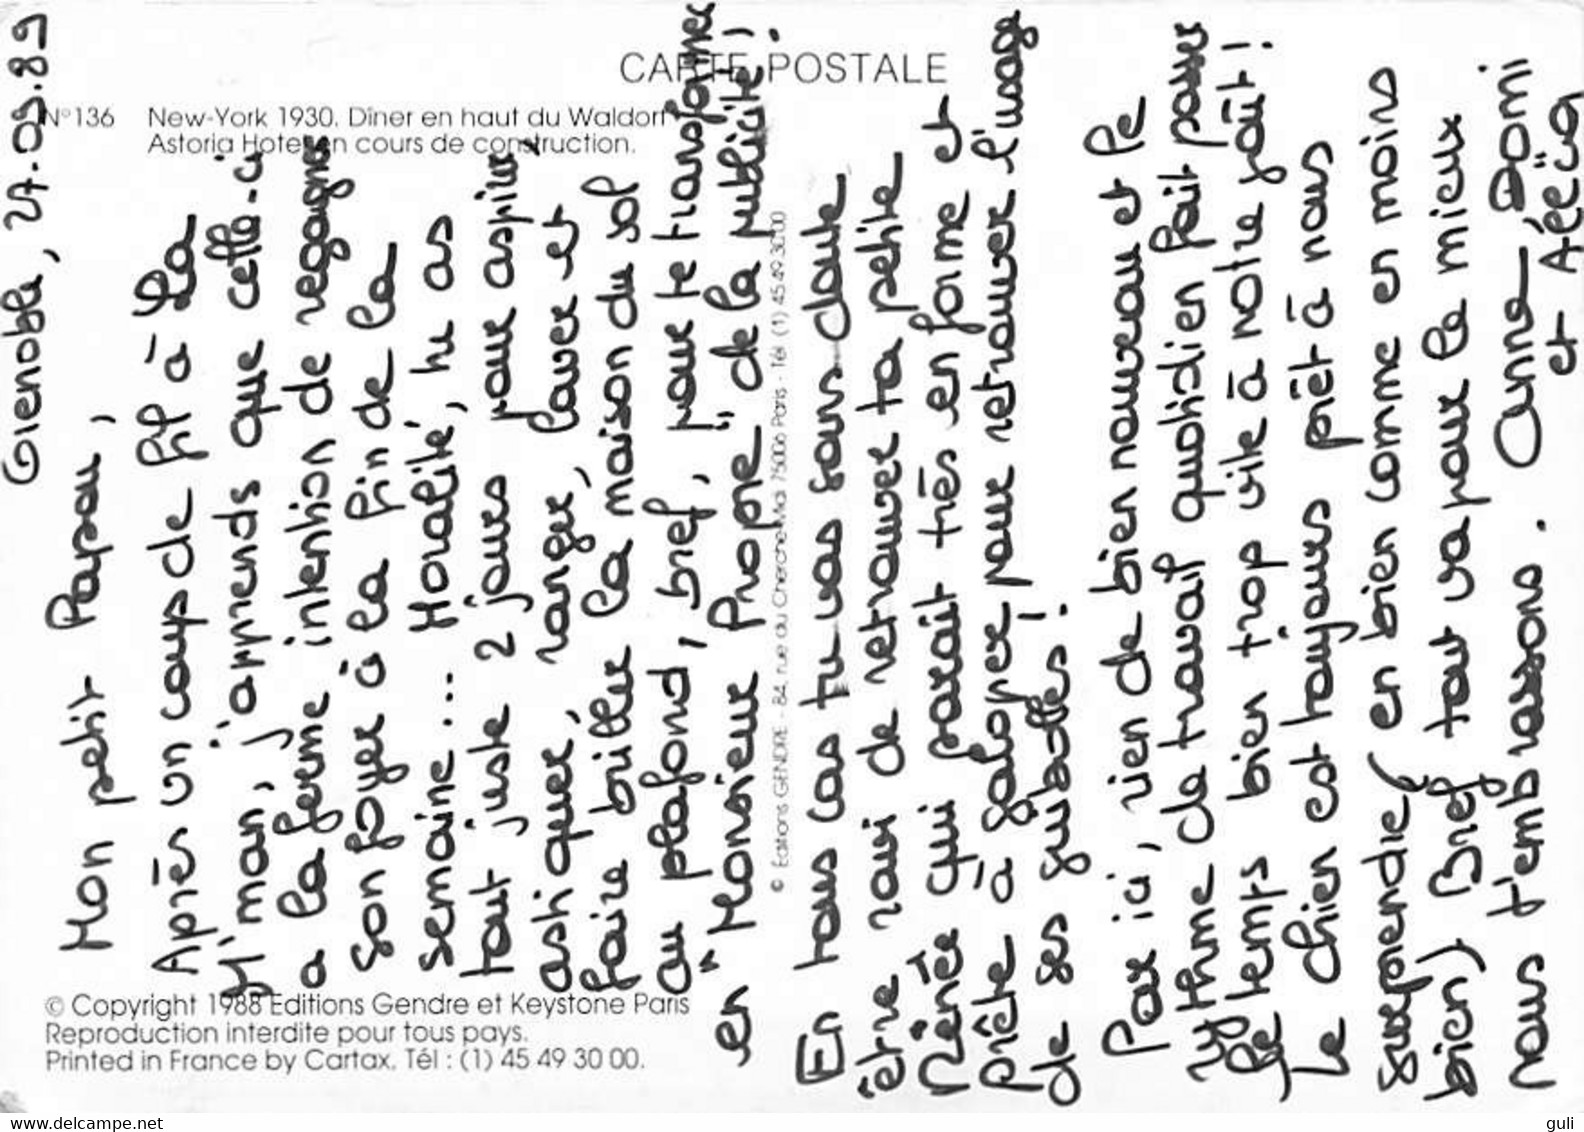 CARTE POSTALE
N°136 New-York 1930. Dîner en haut du Waldorf
Astoria Hotel en cours de construction.
Grenoble, 27.09.89
Mon petit Papou,
Après un coup de fil à La
M'man, j'apprends que celle-ci
a la ferme intention de regagner
son foyer à la fin de la
semaine... Moralité, tu as
tout juste 2 jours pour aspirer,
astiquer, ranger, laver et
faire briller la maison du sol
au plafond, bref, pour te transformer
en "Monsieur Propre" de la publicité !
En tous cas tu vas sans doute
être ravi de retrouver ta petite
Mémée qui paraît très en forme et
prête à galoper pour retrouver l'usage
de ses gubolles !
Par ici, rien de bien nouveau et le
rythme de travail quotidien fait passer
le temps bien trop vite à notre goût !
Le chien est toujours prêt à nous
surprendre (en bien comme en moins
bien). Bref tout va pour le mieux
nous t'embrassons. Anne, Domi
et
© Editions GENDRE - 84, rue du Cherche-Midi 75006 Paris - Tél (1) 45 49 30 00
© Copyright 1988 Editions Gendre et Keystone Paris
Reproduction interdite pour tous pays.
Printed in France by Cartax. Tél : (1) 45 49 30 00.
www.delcampe.net
guli